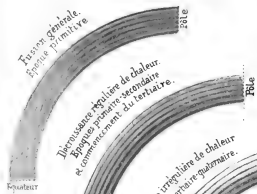 Fusion générale.
Epoque primitive
Pôle
Décroissance régulière de chaleur.
Epoques primaire-secondaire
et commencement du tertiaire.
Pôle
irrégulière de chaleur
tertiaire-quaternaire.
Equateur